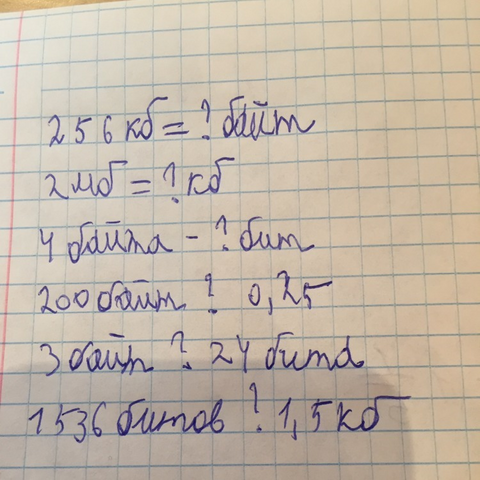 256 кб = ? байт
2 мб = ? кб
4 байта - ? бит
200 байт ? 0,25
3 байт ? 24 бита
1536 битов ? 1,5 кб